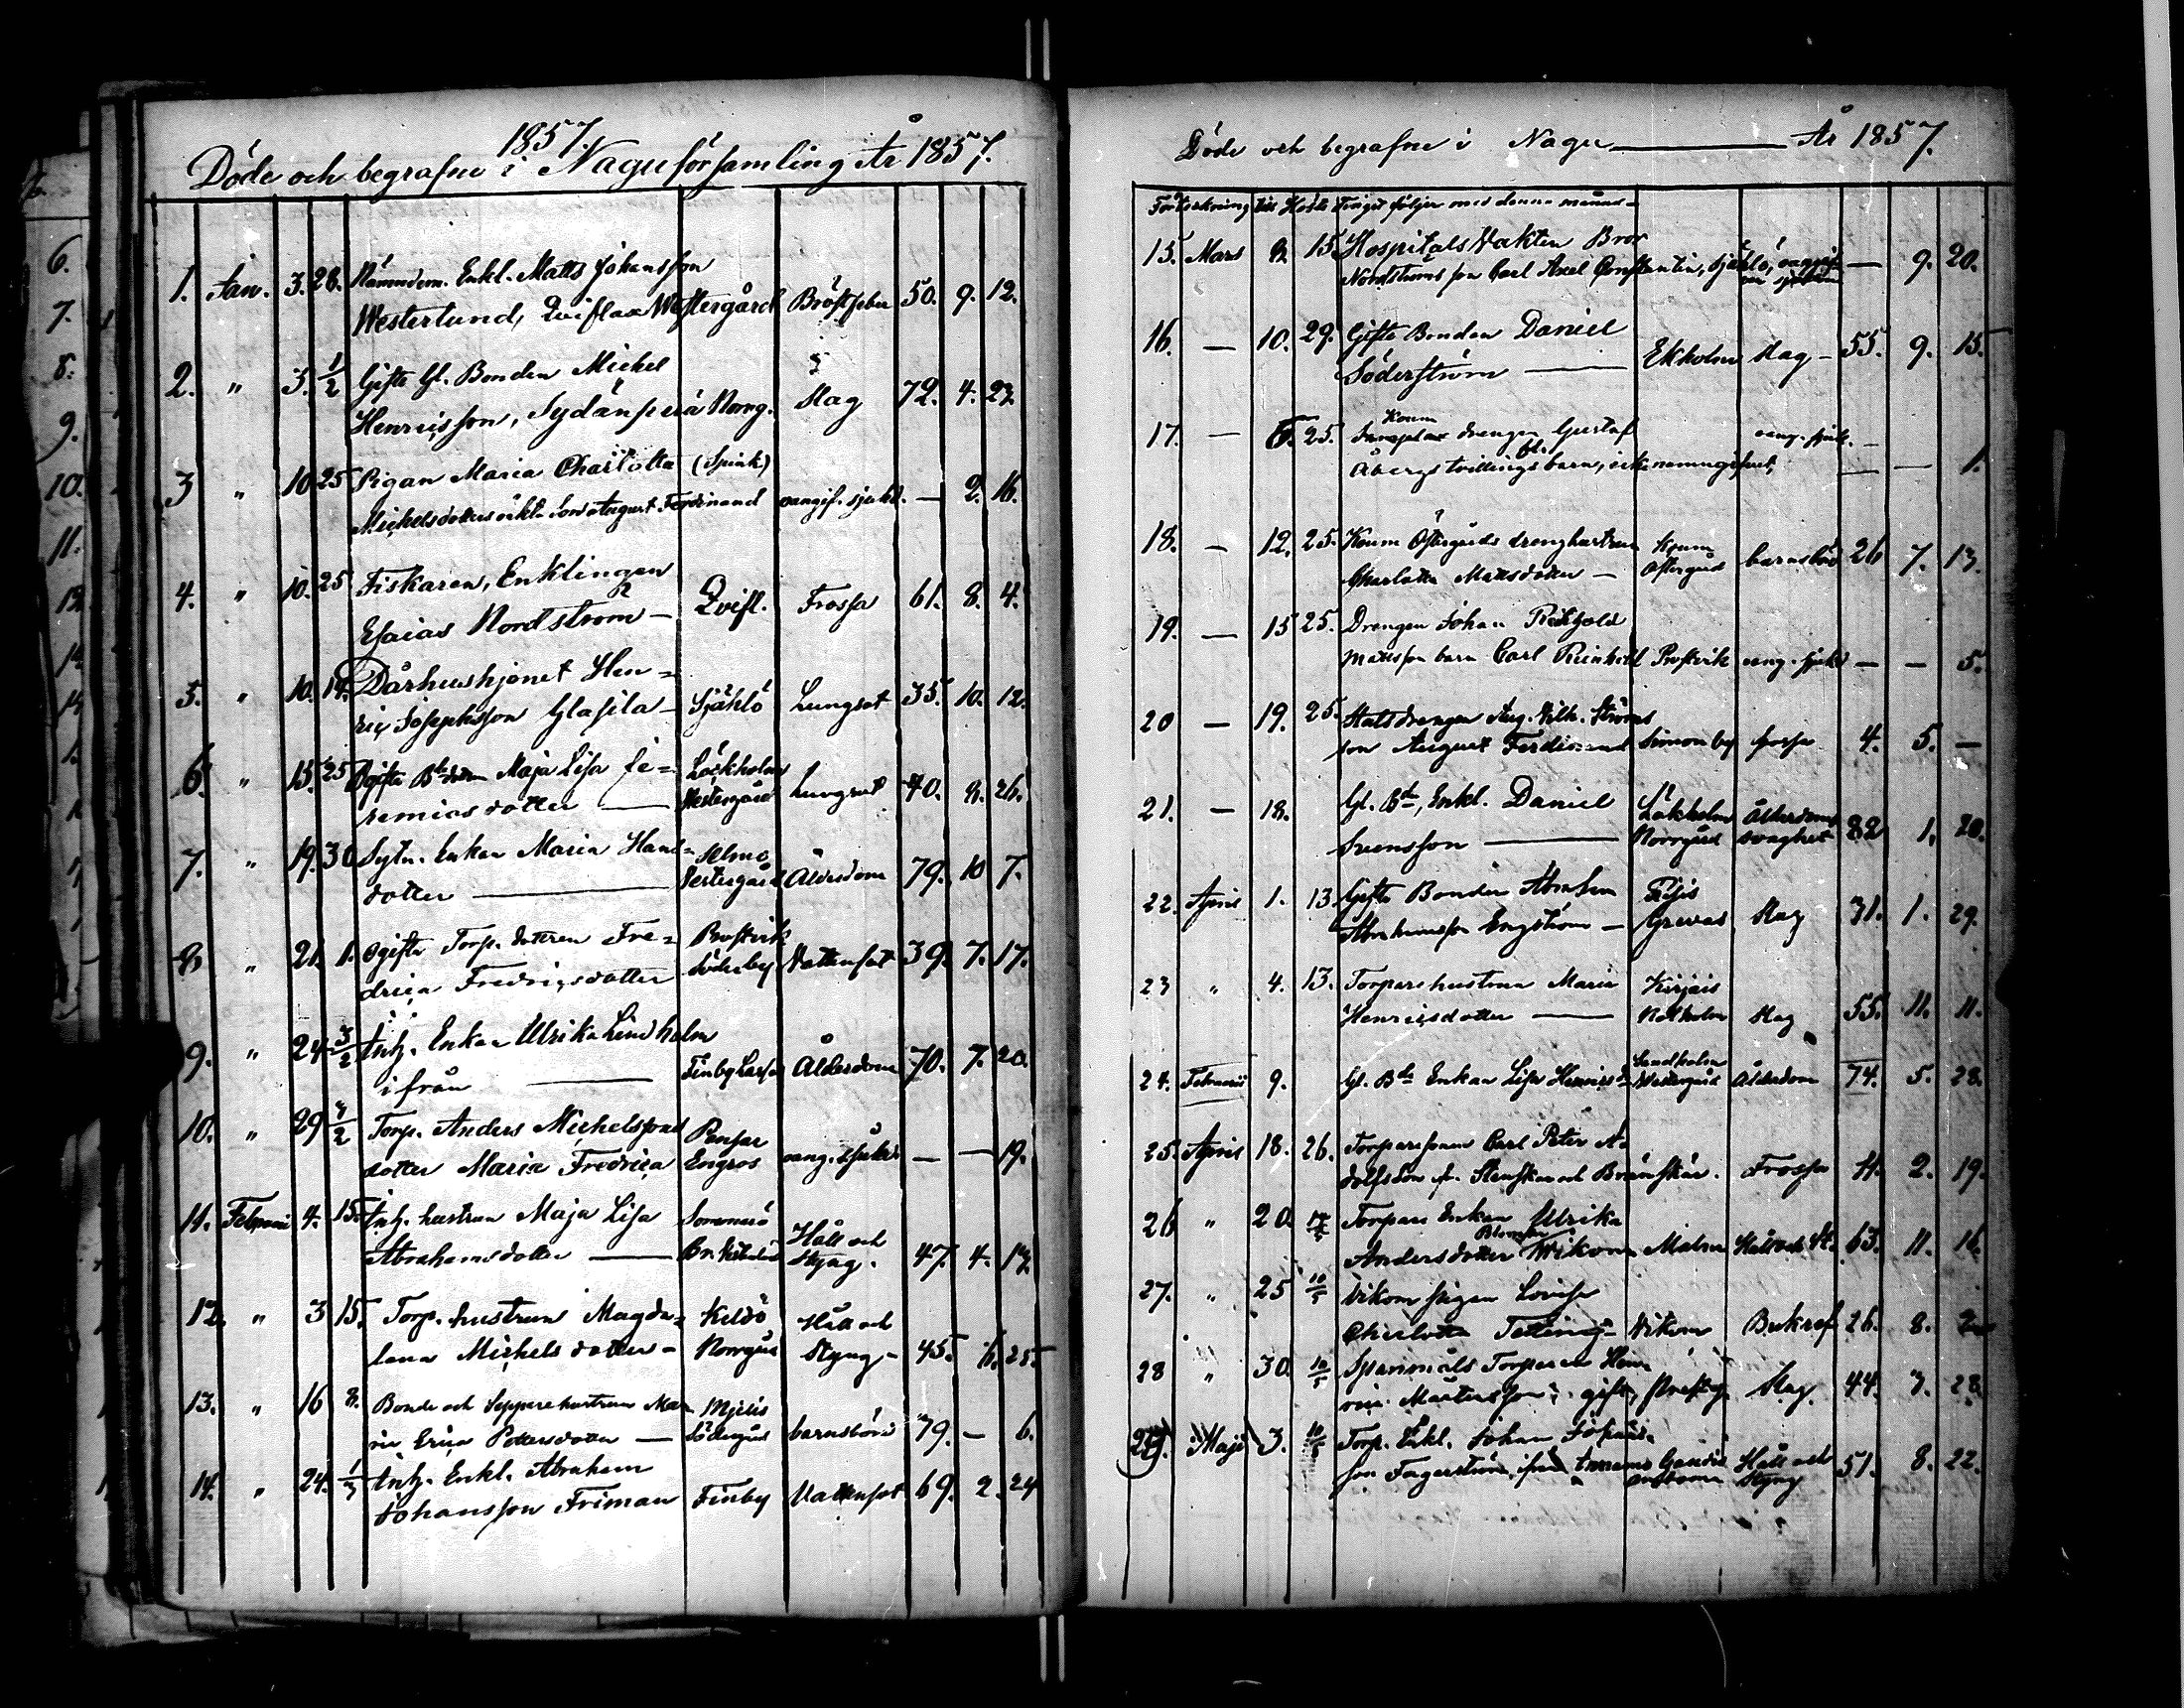 1857.
Döde och begrafne i Nagu församling År 1857.
1. Jan. 3. 28. Nämndem. Enkl. Matts Johansson
Westerlund, Qviflax Westergård Bröstfeber 50. 9. 12.
2. " 3. 1/2 Gifte Gl. Bonden Michel
Henricsson, Sydänperä Norrg. Slag 72. 4. 23.
3 " 10 25 Pigan Maria Charlotta (Spink)
Michelsdotters oäkta son August Ferdinand oangif. sjukd. — 2. 16.
4. " 10. 25 Fiskaren, Enklingen
Esaias Nordström — Qvifl. Frossa 61. 8. 4.
5. " 10. 18. Dårhushjonet Hen=
ric Josephsson Glasila — Själö Lungsot 35. 10. 12.
6. " 15. 25 Ogifte Bdedottren Maja Lisa Je= Lökholm
remiasdotter — Westergård Lungsot 40. 8. 26.
7. " 19. 30 Sytn. Enkan Maria Hans= Ahmo
dotter — Vestergård Ålderdom 79. 10 7.
8 " 21. 1. Ogifte Torp. dottren Fre= Prostvik
drica Fredricsdotter Söderby Vattensot 39. 7. 17.
9. " 24 3/2 Inh. Enkan Ulrika Lindholm
ifrån — Finby Larsas Ålderdom 70. 7. 20.
10. " 29 8/2 Torp. Anders Michelssons Pensar
dotter Maria Fredrica Engros oang. sjukd. — — 19.
11. Februari 4. 15. Inh. hustrun Maja Lisa Sommarö
Abrahamsdotter — Håll och Styng. 47. 4. 13.
12. " 3 15. Torp. hustrun Magda= Keldö
lena Michelsdotter — Norrgård Håll och Styng — 45. 6. 25.
13. " 16 8. Bonde och Sepparehustrun Ma=
ria Erica Pettersdotter — Södergård barnsbörd 79. — 6.
14. " 24. 1/3 Inh. Enkl. Abraham
Johansson Friman Finby Vattensot 69. 2. 24
Döde och begrafne i Nagu — År 1857.
Fortsättning
15. Mars 8. 15. Hospitals Vakten Bror
Nordströms son Carl Axel Constantin, Själö, oangif — 9. 20.
16. — 10. 29. Gifte Bonden Daniel
Söderström — Ekholm Slag — 55. 9. 15.
17. — 25. drengen Gustaf oang. sjukd. —
Åbergs tvillingsbarn, icke — — 1.
18. — 12. 25. Koum Östergårds drenghustrun Koum
Charlotta Mattsdotter — Östergård barnsbörd 26 7. 13.
19. — 15 25. Drengen Johan Reinhold
Mattsson barn Carl Reinhold Prostvik oang. sjukd — — 5.
20 — 19. 25. Statsdrengen Aug. Wilh. Ströms
son August Ferdinand Simonby frossa 4. 5. —
21. — 18. Gl. Bde, Enkl. Daniel Lökholm Ålderdoms
Svensson — Norrgård svaghet 82 1. 20.
22. April 1. 13. Gifte Bonden Abraham
Abrahamsson Engström — Grevas Slag 31. 1. 29.
23 " 4. 13. Torparehustrun Maria Kirjais
Henricsdotter — Slag 55. 11. 11.
24. Februari 9. Gl. Bde Enkan Lisa Henricsdr Sandholm
Westergård Ålderdom 74. 5. 28.
25. April 18. 26. Torparesonen Carl Peter A=
dolfsson fr. Stenskär och Brännskär. Frossa 4. 2. 19.
26 " 20. Torpare Enkan Ulrika
Andersdotter Wikom Malm Håll och St. 63. 11. 16.
27. " 25 10/5 Vikom pigan Lovisa
Charlotta Telling — Vikom Bukref 26. 8. 2
28 " 30. 10/5 Spararnäls Torparen Hen=
ric Mårtensson, gift, Slag 44. 7. 28.
29. Maji 3. 10/5 Torp. Enkl. Johan Johans=
son Fagerström, Håll och Styng 51. 8. 22.